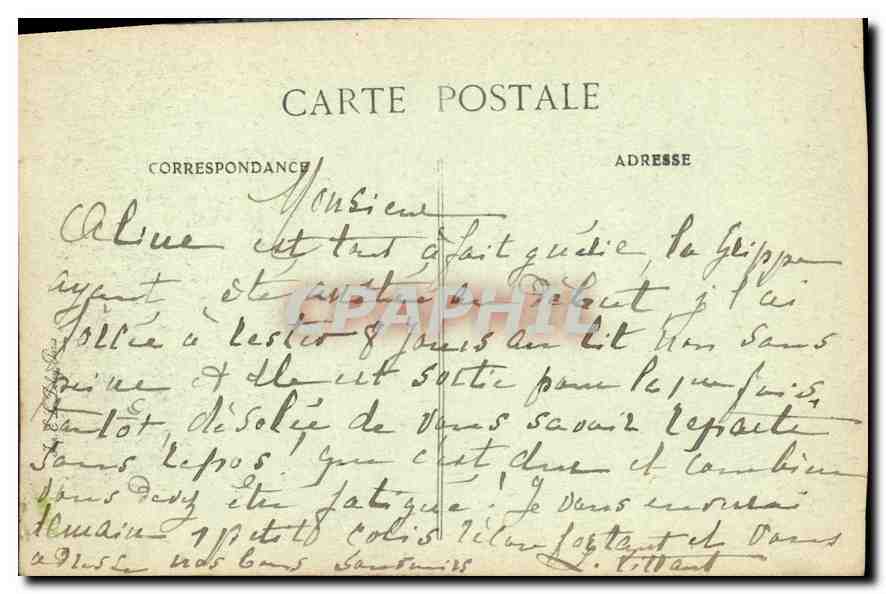 CARTE POSTALE
CORRESPONDANCE
ADRESSE
Monsieur
Aline est tout à fait guérie, la Grippe
ayant été arrêtée au Début, j'l'ai
forcée à rester 8 jours au lit non sans
peine et elle est sortie pour la 1re fois
tantôt, désolée de vous savoir reparti
sans repos! que c'est dur et combien
vous devez être fatigué! Je vous enverrai
demain 1 petit colis réconfortant et vous
adresse nos bons souvenirs
CPAPHIL